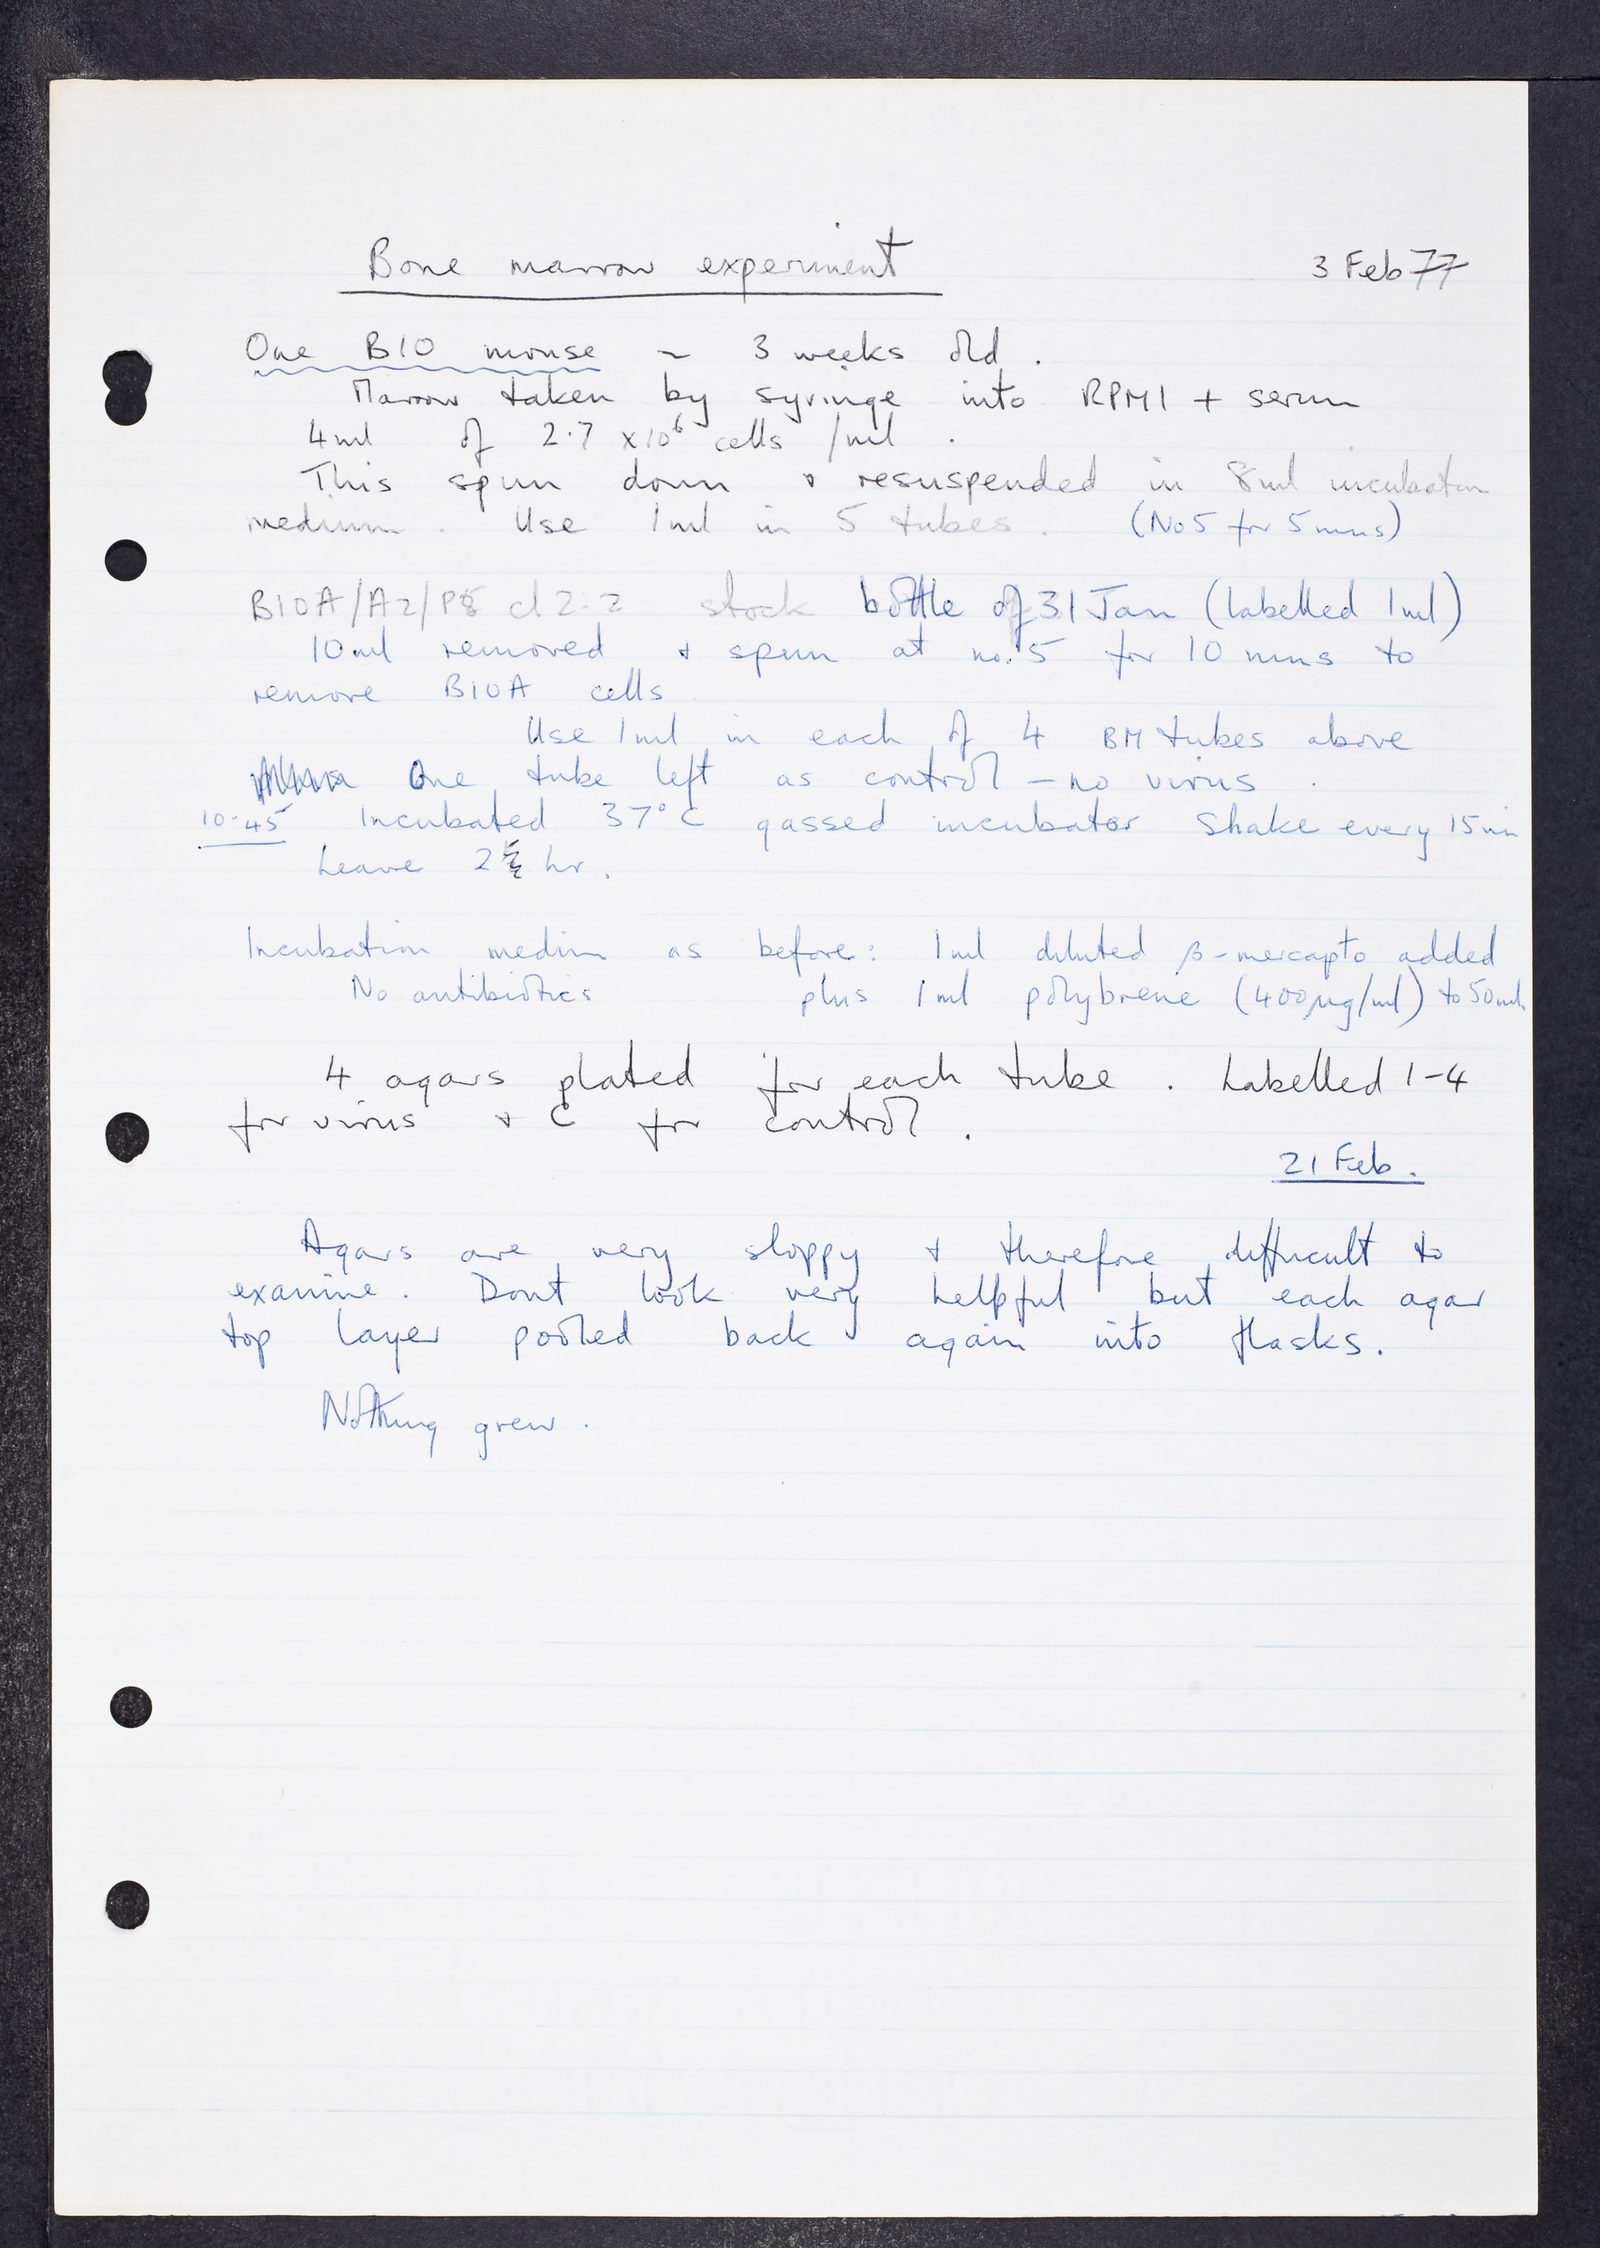 Bone marrow experiment
3 Feb 77
One B10 mouse ~ 3 weeks old.
Marrow taken by syringe into RPMI + serum
4ml of 2.7 x10⁶ cells /ml.
This spun down & resuspended in 8ml incubation
medium. Use 1ml in 5 tubes. (No 5 for 5 mins)
B10A/A2/P8 cl 2.2 stock bottle of 31 Jan (labelled 1ml)
10ml removed & spun at no. 5 for 10 mins to
remove B10A cells.
Use 1ml in each of 4 BM tubes above
One tube left as control – no virus.
10.45 Incubated 37°C gassed incubator Shake every 15min
Leave 2 hr.
Incubation medium as before: 1ml diluted β-mercapto added
No antibiotics plus 1ml polybrene (400µg/ml) to 50ml.
4 agars plated for each tube. Labelled 1-4
for virus & C for control.
21 Feb.
Agars are very sloppy & therefore difficult to
examine. Dont look very helpful but each agar
top layer pooled back again into flasks.
Nothing grew.